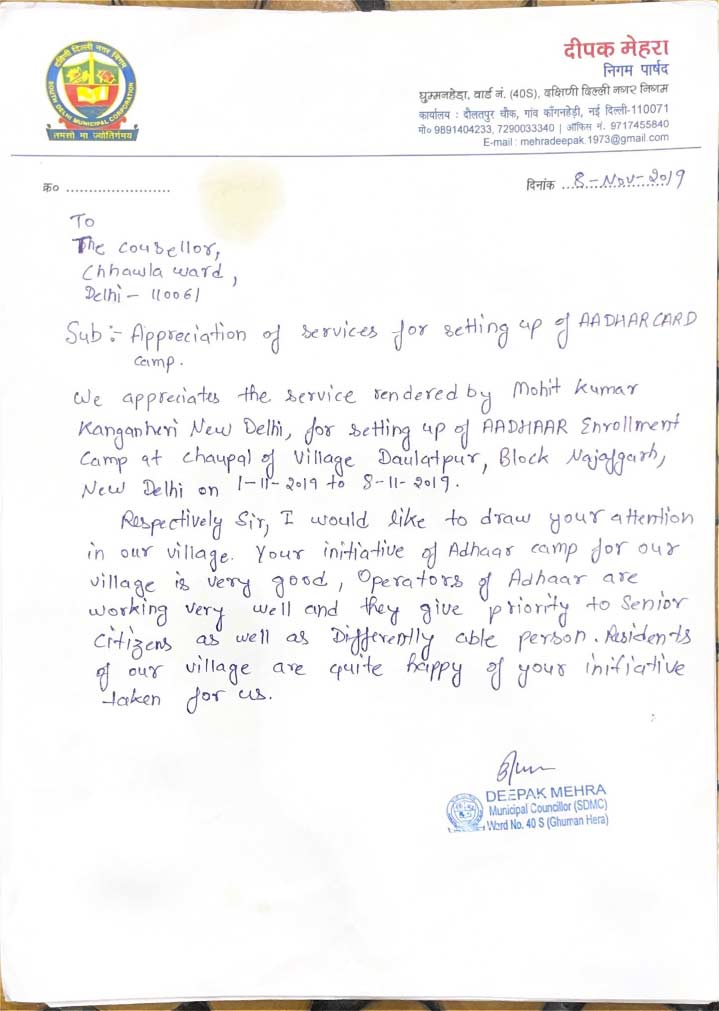 दक्षिणी दिल्ली नगर निगम
SOUTH DELHI MUNICIPAL CORPORATION
तमसो मा ज्योतिर्गमय
दीपक मेहरा
निगम पार्षद
घुम्मनहेड़ा, वार्ड नं. (40S), दक्षिणी दिल्ली नगर निगम
कार्यालय : दौलतपुर चौक, गांव काँगनहेड़ी, नई दिल्ली-110071
मो० 9891404233, 7290033340 | ऑफिस नं. 9717455840
E-mail : mehradeepak.1973@gmail.com
क्र० .......................
दिनांक 8-Nov-2019
To
The Cousellor,
Chhawla ward,
Delhi - 110061
Sub :- Appreciation of services for setting up of AADHAR CARD
camp.
We appreciates the service rendered by Mohit Kumar
Kanganheri New Delhi, for setting up of AADHAAR Enrollment
Camp at Chaupal of Village Daulatpur, Block Najafgarh,
New Delhi on 1-11-2019 to 8-11-2019.
Respectively Sir, I would like to draw your attention
in our village. Your initiative of Adhaar camp for our
village is very good, Operators of Adhaar are
working very well and they give priority to Senior
Citizens as well as Differently able person. Residents
of our village are quite happy of your initiative
taken for us.
DEEPAK MEHRA
Municipal Councillor (SDMC)
Ward No. 40 S (Ghuman Hera)